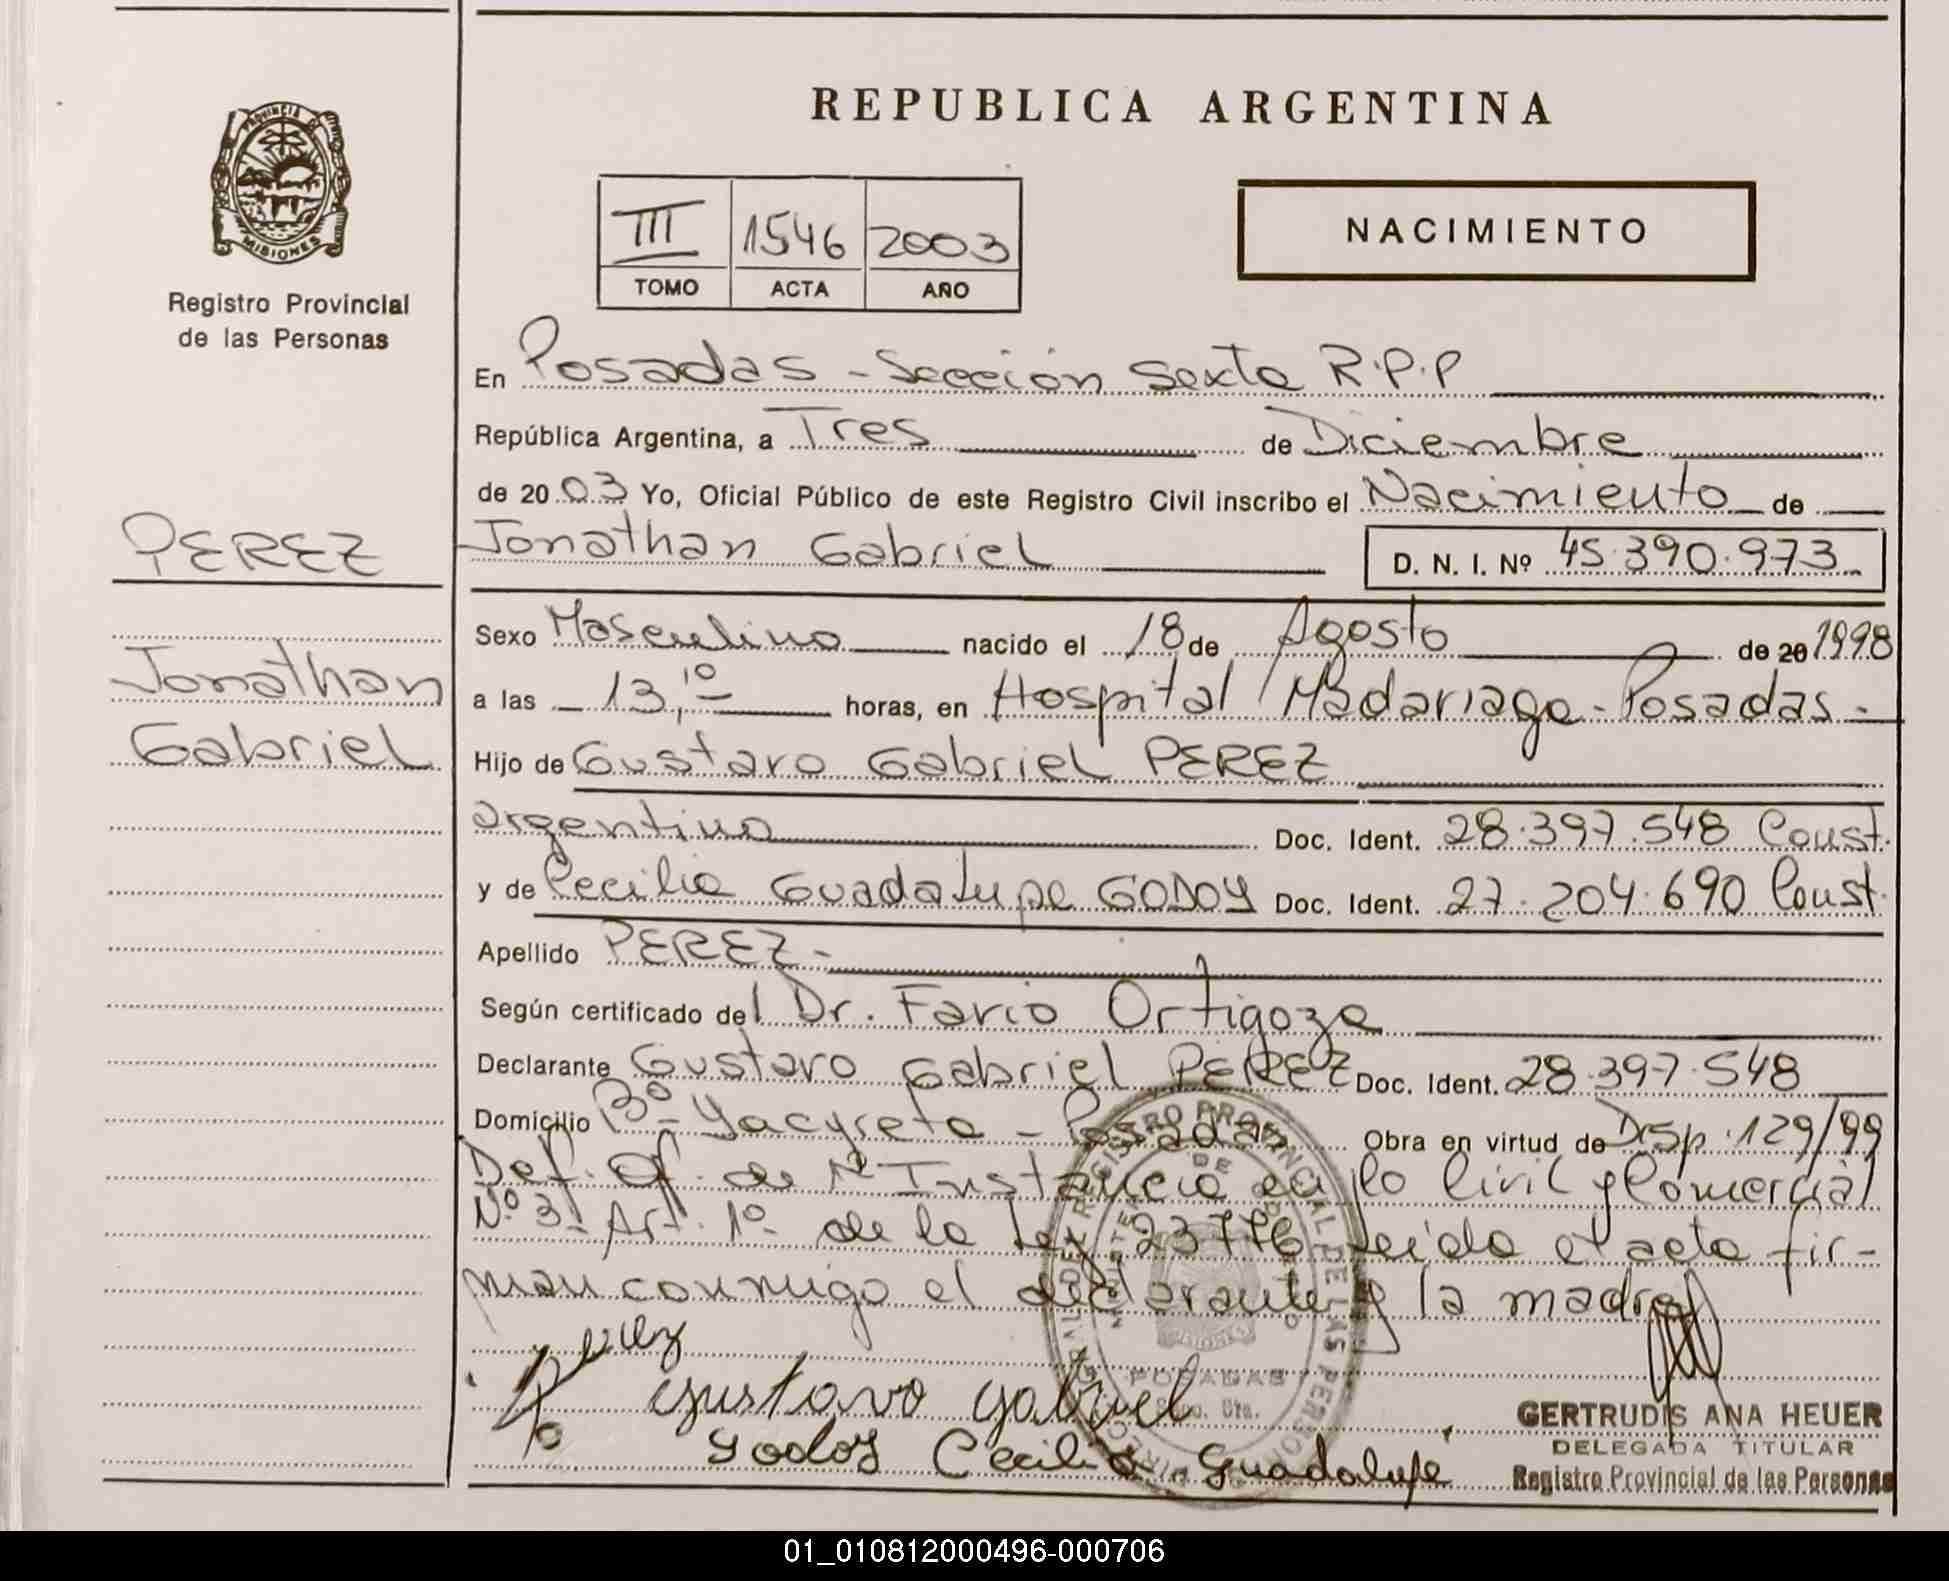 REPUBLICA ARGENTINA
PROVINCIA DE MISIONES
Registro Provincial
de las Personas
III 1546 2003
TOMO ACTA AÑO
NACIMIENTO
PEREZ
Jonathan
Gabriel
En Posadas - Sección Sexta R.P.P
República Argentina, a Tres de Diciembre
de 20 03 Yo, Oficial Público de este Registro Civil inscribo el Nacimiento de
Jonathan Gabriel D. N. I. Nº 45.390.973
Sexo Masculino nacido el 18 de Agosto de 20 1998
a las 13,10 horas, en Hospital Madariaga - Posadas -
Hijo de Gustavo Gabriel PEREZ
argentino Doc. Ident. 28.397.548 Const.
y de Cecilia Guadalupe GODOY Doc. Ident. 27.204.690 Const.
Apellido PEREZ -
Según certificado del Dr. Favio Ortigoza
Declarante Gustavo Gabriel PEREZ Doc. Ident. 28.397.548
Domicilio Bº Yacyreta - Posadas Obra en virtud de Disp. 129/99
Def. Of. de Instancia en lo Civil y Comercial
Nº 3 - Art. 1º de la Ley 23776 Leida el acta fir-
man conmigo el declarante y la madre
Perez
Gustavo Gabriel
Godoy Cecilia Guadalupe
REGISTRO PROVINCIAL DE LAS PERSONAS
POSADAS
GERTRUDIS ANA HEUER
DELEGADA TITULAR
Registro Provincial de las Personas
01_010812000496-000706